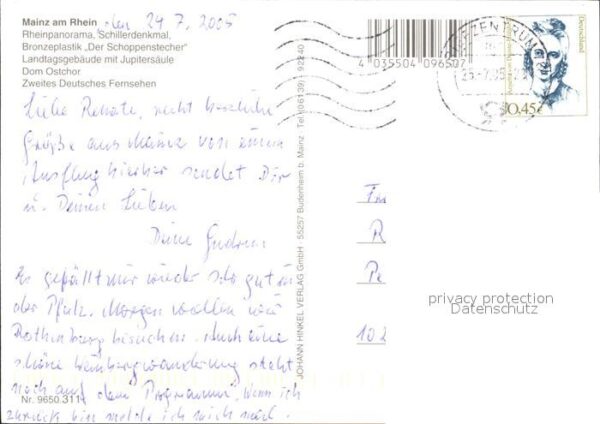 Mainz am Rhein, den 24.7.2005
Rheinpanorama, Schillerdenkmal,
Bronzeplastik „Der Schoppenstecher"
Landtagsgebäude mit Jupitersäule
Dom Ostchor
Zweites Deutsches Fernsehen
Liebe Renate, recht herzliche
Grüße aus Mainz von einem
Ausflug hierher sendet Dir
u. Deinen Lieben
Deine Gudrun
Es gefällt mir wieder sehr gut in
der Pfalz. Morgen wollen wir
Rothenburg besuchen. Auch eine
schöne Weinbergwanderung steht
noch auf dem Programm. Wenn ich
zurück bin melde ich mich mal.
Nr. 9650.311
JOHANN HINKEL VERLAG GmbH · 55257 Budenheim b. Mainz Tel. (06139) 92240
4 035504 096507
BRIEFZENTRUM
Deutschland
0,45€
Fr
R
Pe
102
privacy protection
Datenschutz